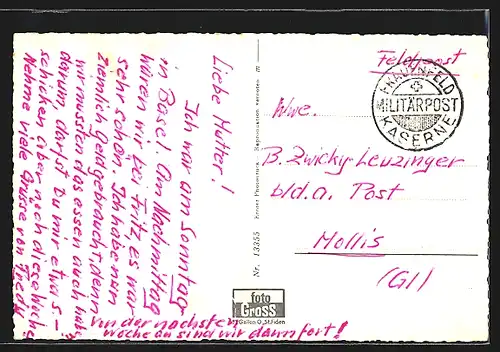 Liebe Mutter!
Ich war am Sonntag
in Basel. Am Nachmittag
waren wir bei Fritz es war
sehr schön. Ich habe nun
ziemlich Geld gebraucht, denn
wir mussten das essen auch hab
darum darfst Du mir etwas
schicken aber noch diese Woche
Nehme viele Grüsse von Fredy
in der nächsten
woche an sind wir dann fort!
Nr. 13355
foto
GROSS
St. Gallen O, St. Fiden
Feldpost
FRAUENFELD
MILITÄRPOST
KASERNE
Wwe.
B. Zwicky-Leuzinger
b/d.a. Post
Mollis
(Gl)